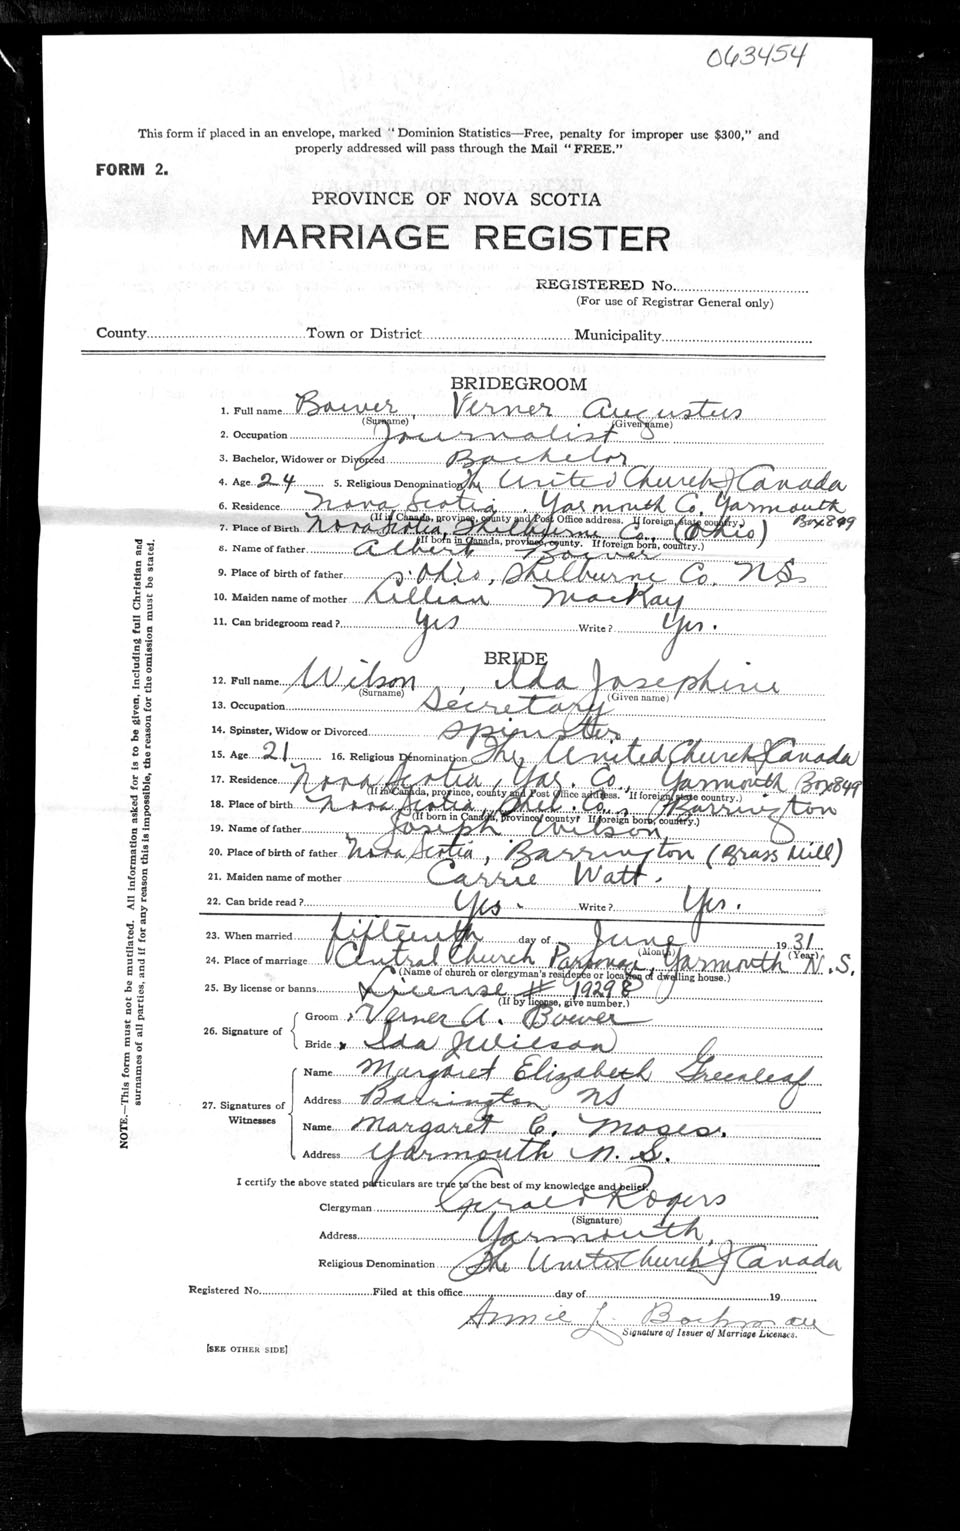 063454
This form if placed in an envelope, marked "Dominion Statistics—Free, penalty for improper use $300," and
properly addressed will pass through the Mail "FREE."
FORM 2.
PROVINCE OF NOVA SCOTIA
MARRIAGE REGISTER
REGISTERED No.
(For use of Registrar General only)
County Town or District Municipality
BRIDEGROOM
1. Full name Bower, Verner Augustus
(Surname) (Given name)
2. Occupation Journalist
3. Bachelor, Widower or Divorced Bachelor
4. Age 24 5. Religious Denomination The United Church of Canada
6. Residence Nova Scotia, Yarmouth Co. Yarmouth
(If in Canada, province, county and Post Office address. If foreign, state country.) Box 849
7. Place of Birth Nova Scotia, Shelburne Co., (Ohio)
(If born in Canada, province, county. If foreign born, country.)
8. Name of father Albert Bower
9. Place of birth of father Ohio, Shelburne Co. N.S.
10. Maiden name of mother Lillian MacKay
11. Can bridegroom read? Yes Write? Yes.
BRIDE
12. Full name Wilson, Ida Josephine
(Surname) (Given name)
13. Occupation Secretary
14. Spinster, Widow or Divorced Spinster
15. Age 21 16. Religious Denomination The United Church of Canada
17. Residence Nova Scotia, Yar. Co., Yarmouth Box 849
(If in Canada, province, county and Post Office address. If foreign state country.)
18. Place of birth Nova Scotia, Shel. Co., Barrington
(If born in Canada, province, county. If foreign born, country.)
19. Name of father Joseph Wilson
20. Place of birth of father Nova Scotia, Barrington (Brass Hill)
21. Maiden name of mother Carrie Watt.
22. Can bride read? Yes. Write? Yes.
23. When married fifteenth day of June 1931
(Month) (Year)
24. Place of marriage Central Church Parsonage, Yarmouth N.S.
(Name of church or clergyman's residence or location of dwelling house.)
25. By license or banns License # 19298
(If by license, give number.)
26. Signature of Groom Verner A. Bower
Bride Ida J Wilson
27. Signatures of Witnesses
Name Margaret Elizabeth Greenleaf
Address Barrington NS
Name Margaret C. Moses.
Address Yarmouth N.S.
I certify the above stated particulars are true to the best of my knowledge and belief.
Clergyman Gerald Rogers
(Signature)
Address Yarmouth,
Religious Denomination The United Church of Canada
Registered No. Filed at this office day of 19
Annie L.
Signature of Issuer of Marriage Licenses.
[SEE OTHER SIDE]
NOTE.—This form must not be mutilated. All information asked for is to be given, including full Christian and
surnames of all parties, and if for any reason this is impossible, the reason for the omission must be stated.